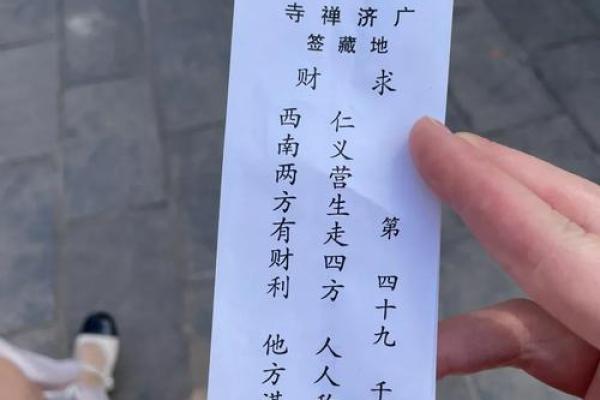 广济禅寺
地藏签
求财
第 四十九
仁义营生走四方 人人
西南两方有财利 他方